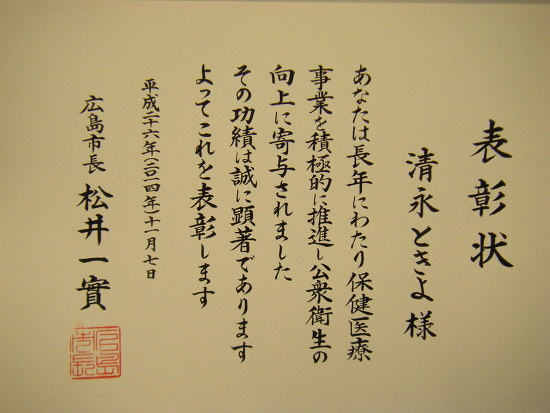 表彰状
清永ときよ様
あなたは長年にわたり保健医療
事業を積極的に推進し公衆衛生の
向上に寄与されました
その功績は誠に顕著であります
よってこれを表彰します
平成二十六年(二〇一四年)十一月七日
広島市長 松井一實
広島市長